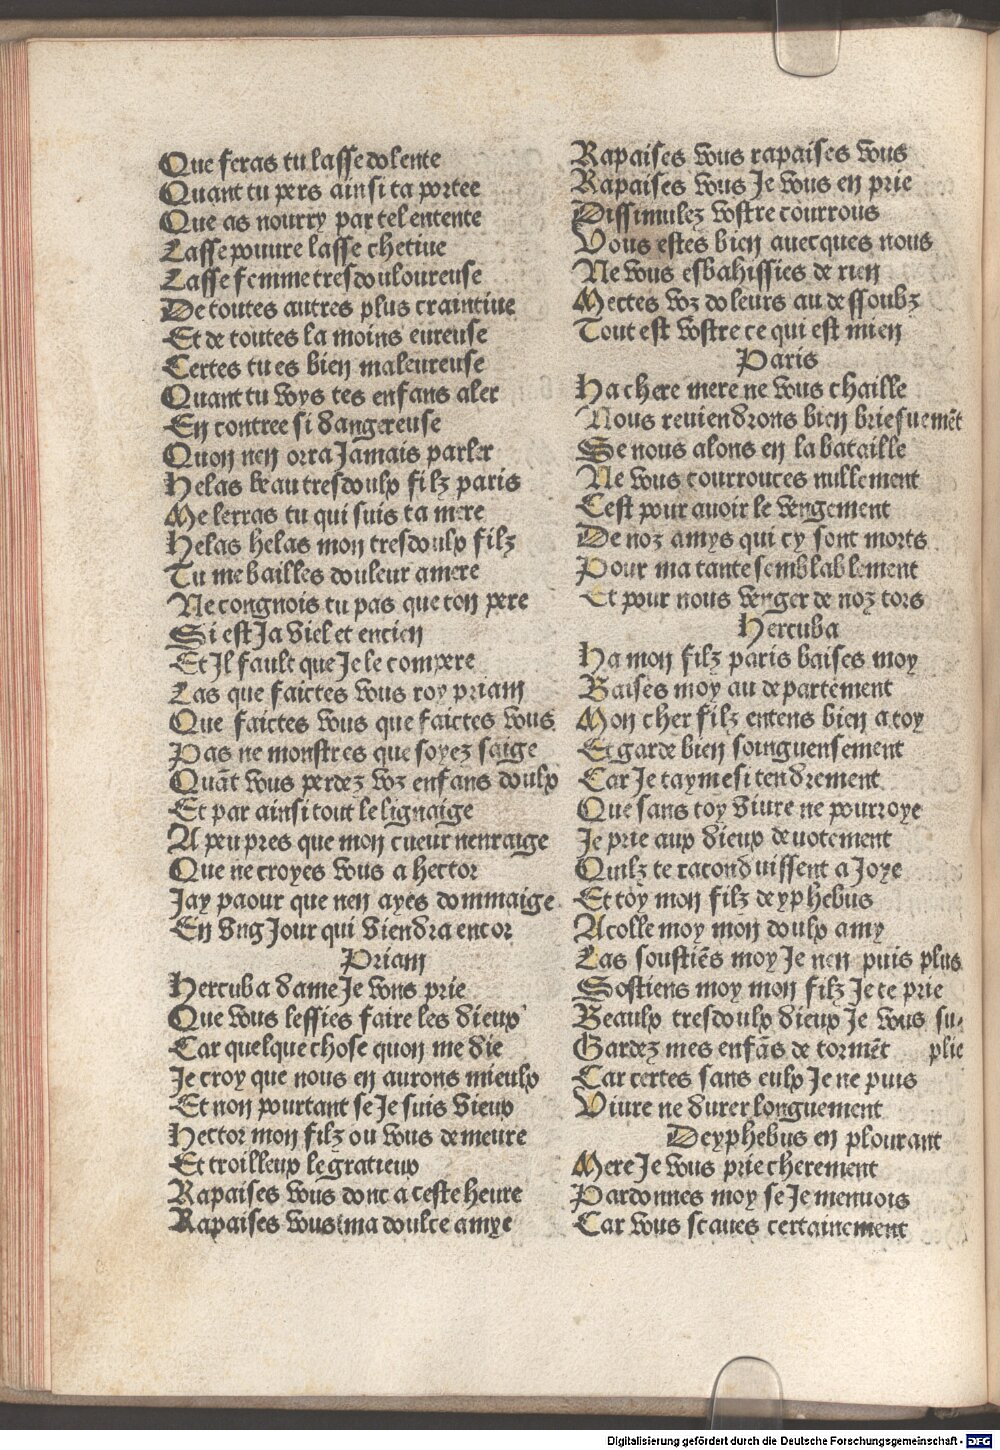 Que feras tu lasse dolente
Quant tu pers ainsi ta portee
Que as nourry par tel entente
Lasse pouure lasse chetiue
Lasse femme tresdouloureuse
De toutes autres plus craintiue
Et de toutes la moins eureuse
Certes tu es bien maleureuse
Quant tu voys tes enfans aler
En contree si dangereuse
Quon nen orra Jamais parler
Helas beau tresdoulx filz paris
Me lerras tu qui suis ta mere
Helas helas mon tresdoulx filz
Tu me bailles douleur amere
Ne congnois tu pas que ton pere
Si est Ja viel et encien
Et Il fault que Je le compere
Las que faictes vous roy priam
Que faictes vous que faictes vous
Pas ne monstres que soyez saige
Quãt vous perdez voz enfans doulx
Et par ainsi tout le lignaige
A peu pres que mon cueur nenraige
Que ne croyes vous a hector
Jay paour que nen ayes dommaige
En vng Jour qui viendra encor
Priam
Hercuba dame Je vons prie
Que vous lessies faire les dieux
Car quelque chose quon me die
Je croy que nous en aurons mieulx
Et non pourtant se Je suis vieux
Hector mon filz ou vous demeure
Et troilleux le gratieux
Rapaises vous donc a ceste heure
Rapaises vous ma doulce amye
Rapaises vous rapaises vous
Rapaises vous Je vous en prie
Dissimulez vostre courrous
Vous estes bien auecques nous
Ne vous esbahissies de rien
Mectes voz doleurs au dessoubz
Tout est vostre ce qui est mien
Paris
Ha chere mere ne vous chaille
Nous reuiendrons bien briefuemẽt
Se nous alons en la bataille
Ne vous courrouces nullement
Cest pour auoir le vengement
De noz amys qui cy sont morts
Pour ma tante semblablement
Et pour nous venger de noz tors
Hercuba
Ha mon filz paris baises moy
Baises moy au departement
Mon cher filz entens bien a toy
Et garde bien soinguensement
Car Je tayme si tendrement
Que sans toy viure ne pourroye
Je prie aux dieux deuotement
Quilz te raconduissent a Joye
Et toy mon filz deyphebus
Acolle moy mon doulx amy
Las soustiẽs moy Je nen puis plus
Sostiens moy mon filz Je te prie
Beaulx tresdoulx dieux Je vous su-
Gardez mes enfãs de tormẽt plie
Car certes sans eulx Je ne puis
Viure ne durer longuement
Deyphebus en plourant
Mere Je vous prie cherement
Pardonnes moy se Je menuois
Car vous scaues certainement
Digitalisierung gefördert durch die Deutsche Forschungsgemeinschaft - DFG